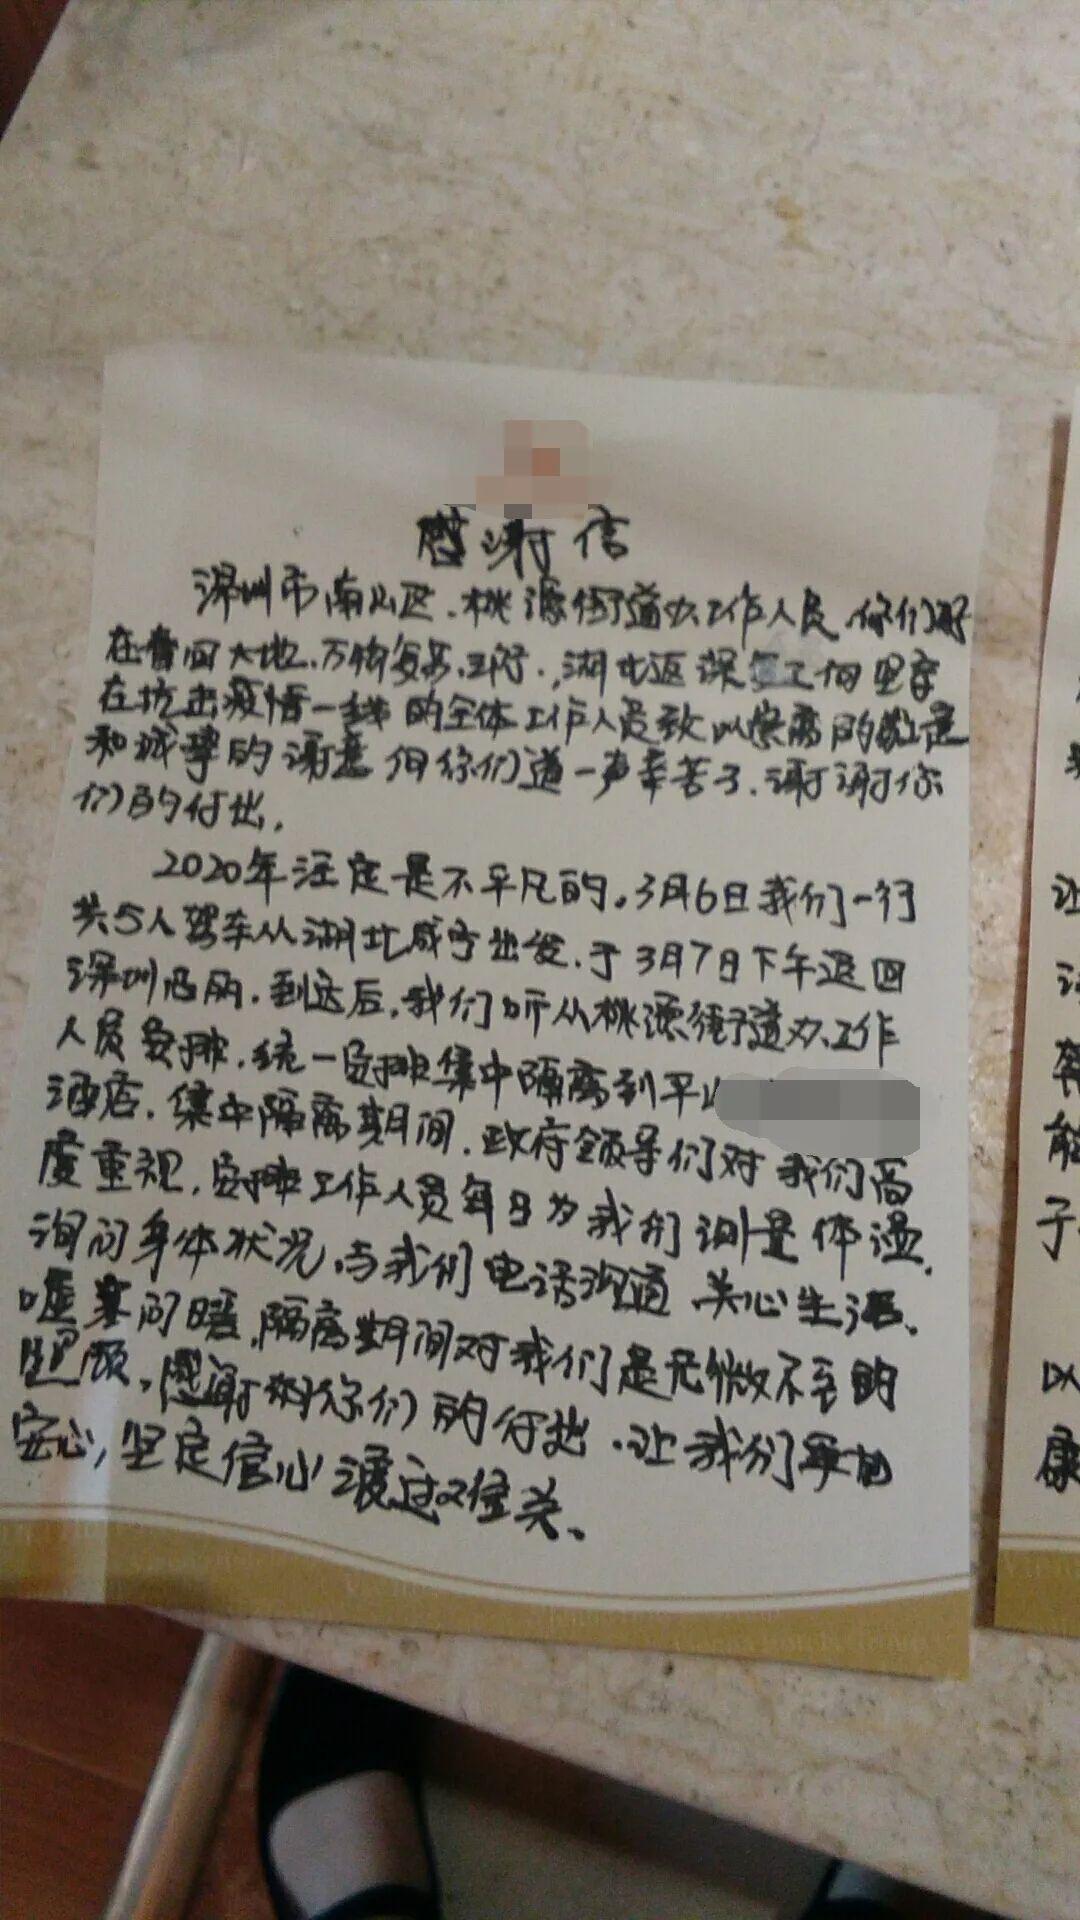 感谢信
深圳市南山区、桃源街道办工作人员、你们好
在春回大地、万物复苏、之际、湖北返深复工向坚守
在抗击疫情一线的全体工作人员致以崇高的敬意
和诚挚的谢意 向你们道一声辛苦了、谢谢你
们的付出,
2020年注定是不平凡的。3月6日我们一行
共5人驾车从湖北咸宁出发、于3月7日下午返回
深圳 到达后,我们听从桃源街道办、工作
人员安排、统一安排集中隔离到平
酒店、集中隔离期间、政府领导们对我们高
度重视,安排工作人员每日为我们测量体温、
询问身体状况、与我们电话沟通、关心生活、
嘘寒问暖、隔离期间对我们是无微不至的
照顾,感谢 你们的付出、让我们更加
安心,坚定信心渡过难关、
让
能
子
以
康